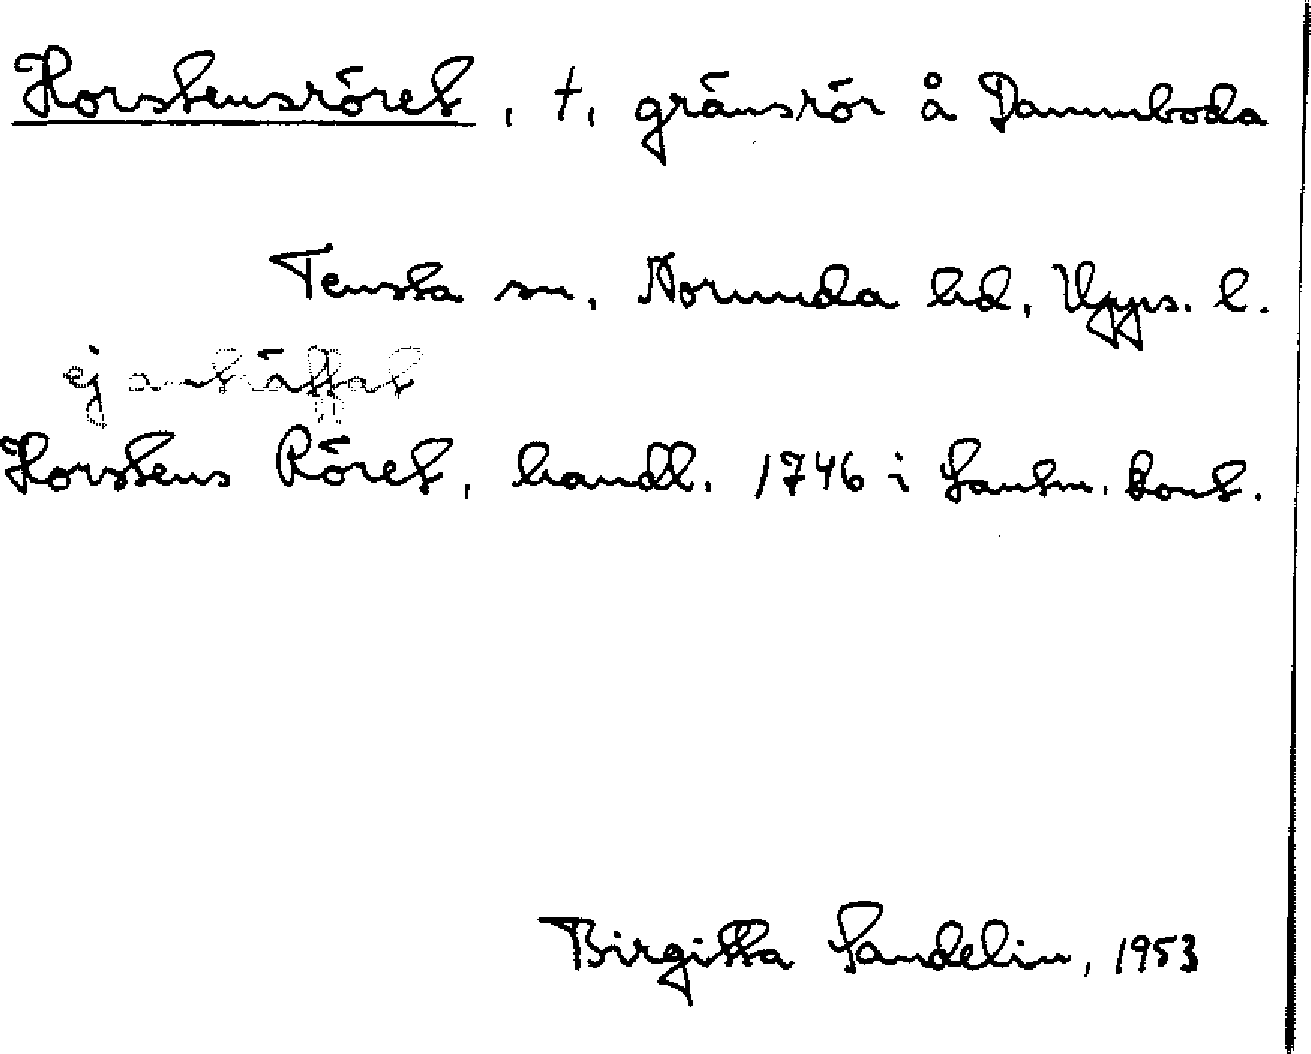 Horstensröret, †, gränsrör å Dammboda
Tensta sn, Norunda hd, Upps. l.
ej anträffat
Horstens Röret, handl. 1746 i Lantm. kont.
Birgitta Sandelin, 1953